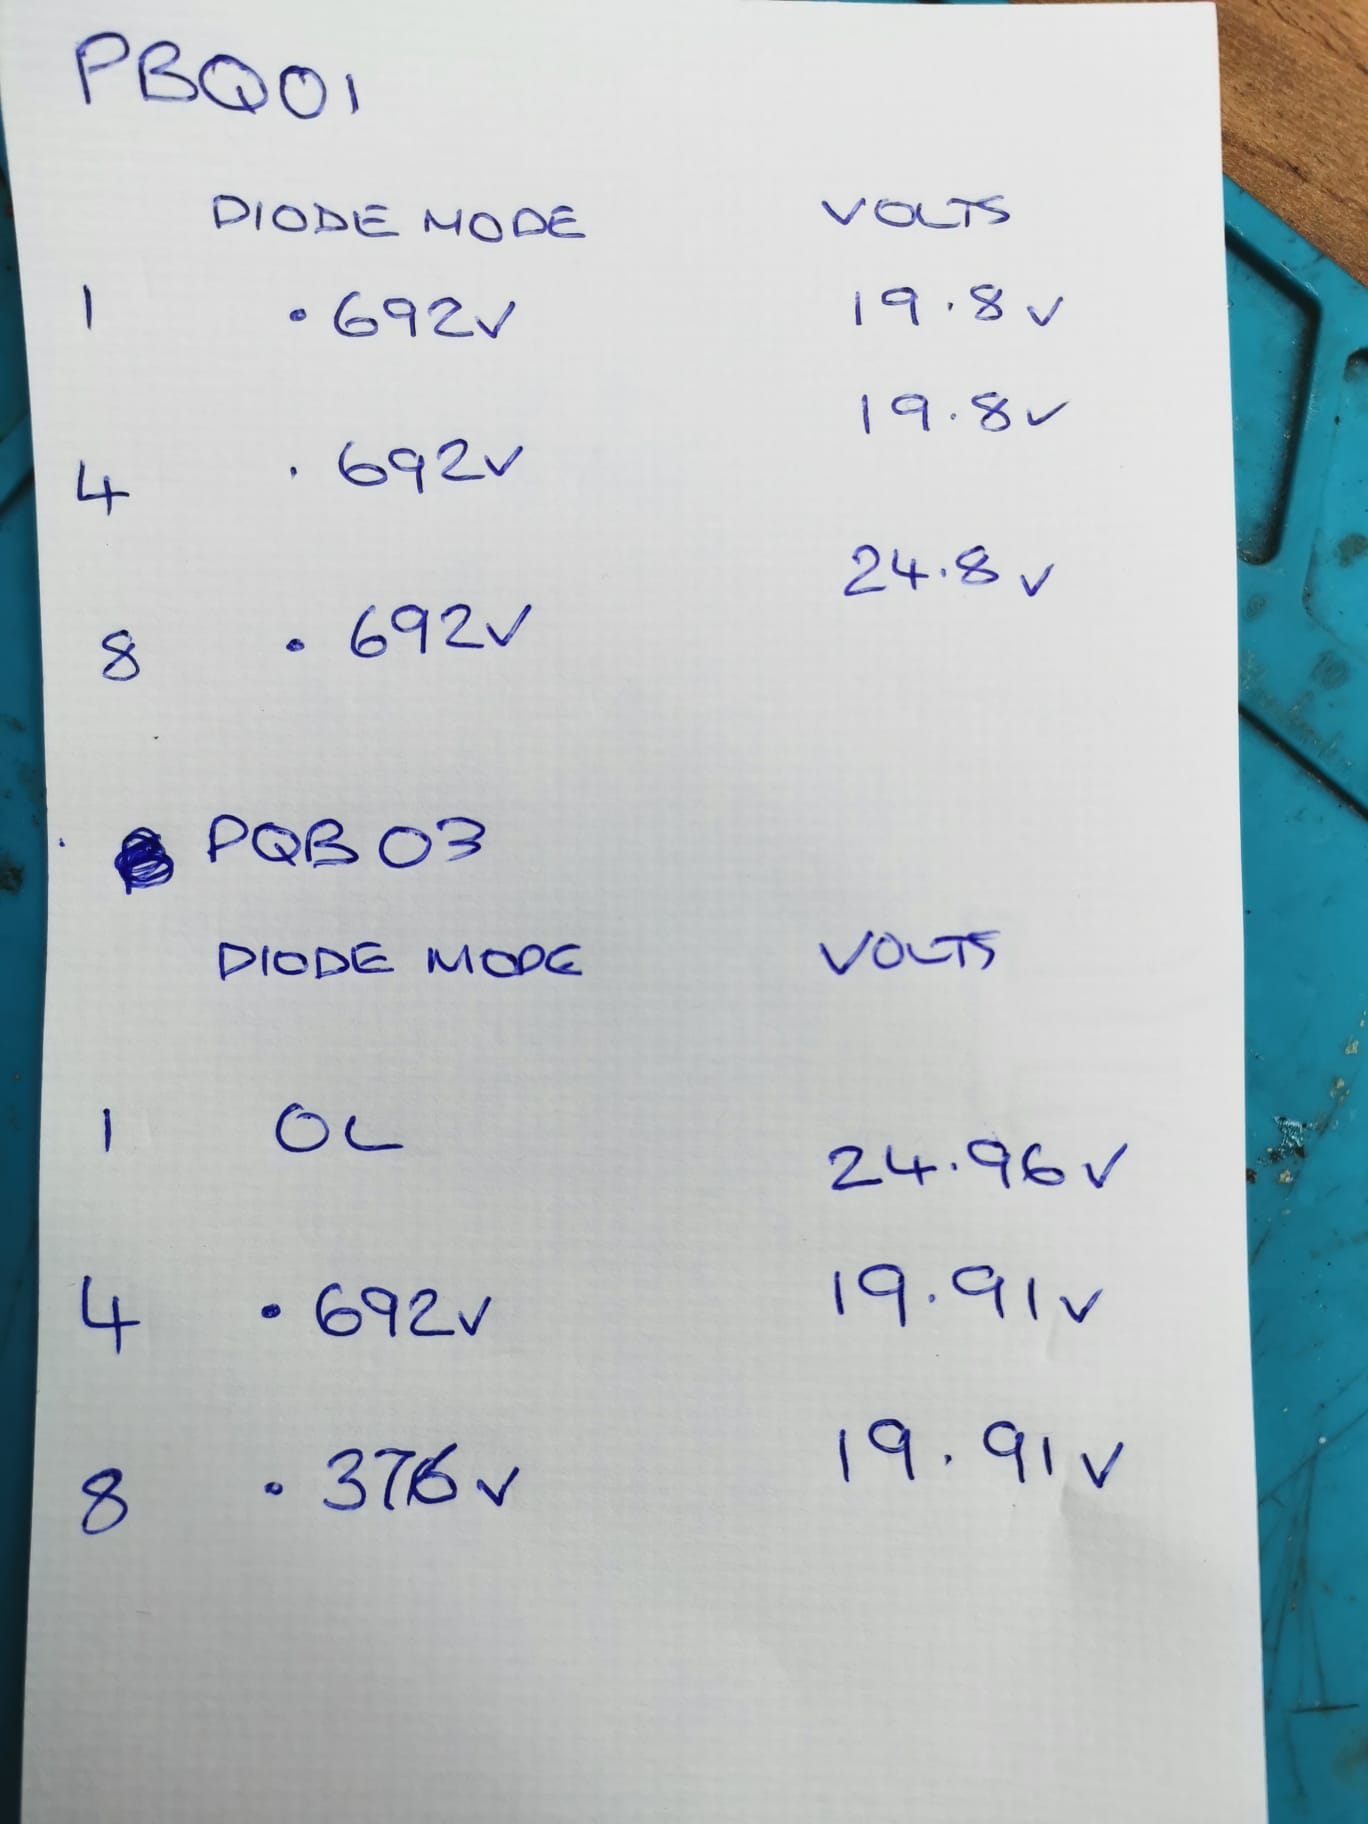 PBQ01
DIODE MODE VOLTS
1 .692v 19.8v
19.8v
4 .692v
24.8v
8 .692v
PQB03
DIODE MODE VOLTS
1 OL 24.96v
4 .692v 19.91v
8 .376v 19.91v